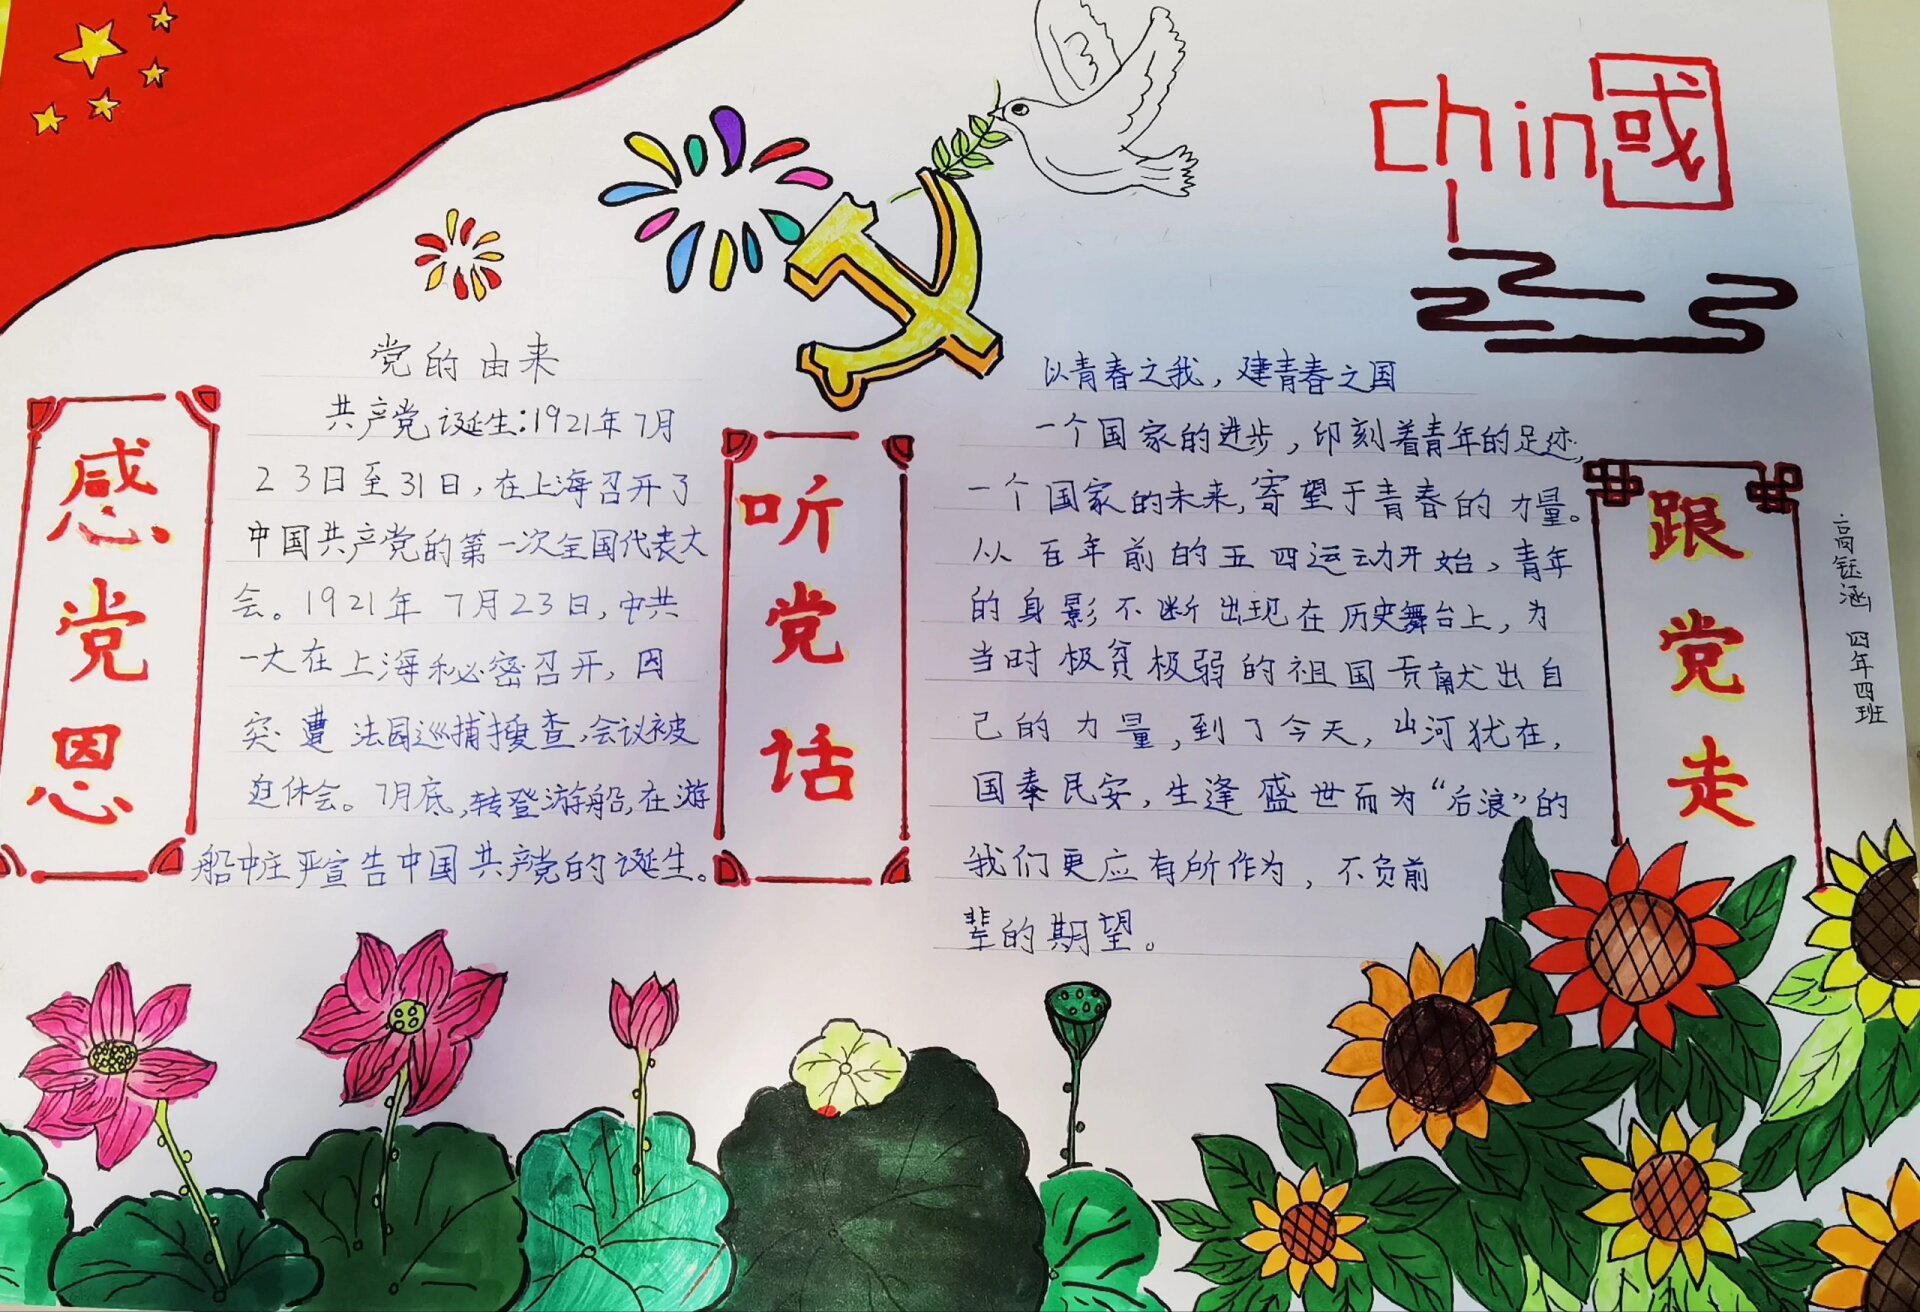 chin国
党的由来
共产党诞生:1921年7月
23日至31日,在上海召开了
中国共产党的第一次全国代表大
会。1921年7月23日,中共
一大在上海秘密召开,因
突遭法园巡捕搜查,会议被
迫休会。7月底,转登游船,在游
船中庄严宣告中国共产党的诞生。
感党恩
听党话
以青春之我,建青春之国
一个国家的进步,印刻着青年的足迹,
一个国家的未来,寄望于青春的力量。
从百年前的五四运动开始,青年
的身影不断出现在历史舞台上,为
当时极贫极弱的祖国贡献出自
己的力量,到了今天,山河犹在,
国泰民安,生逢盛世而为“后浪”的
我们更应有所作为,不负前
辈的期望。
跟党走
高钰涵 四年四班